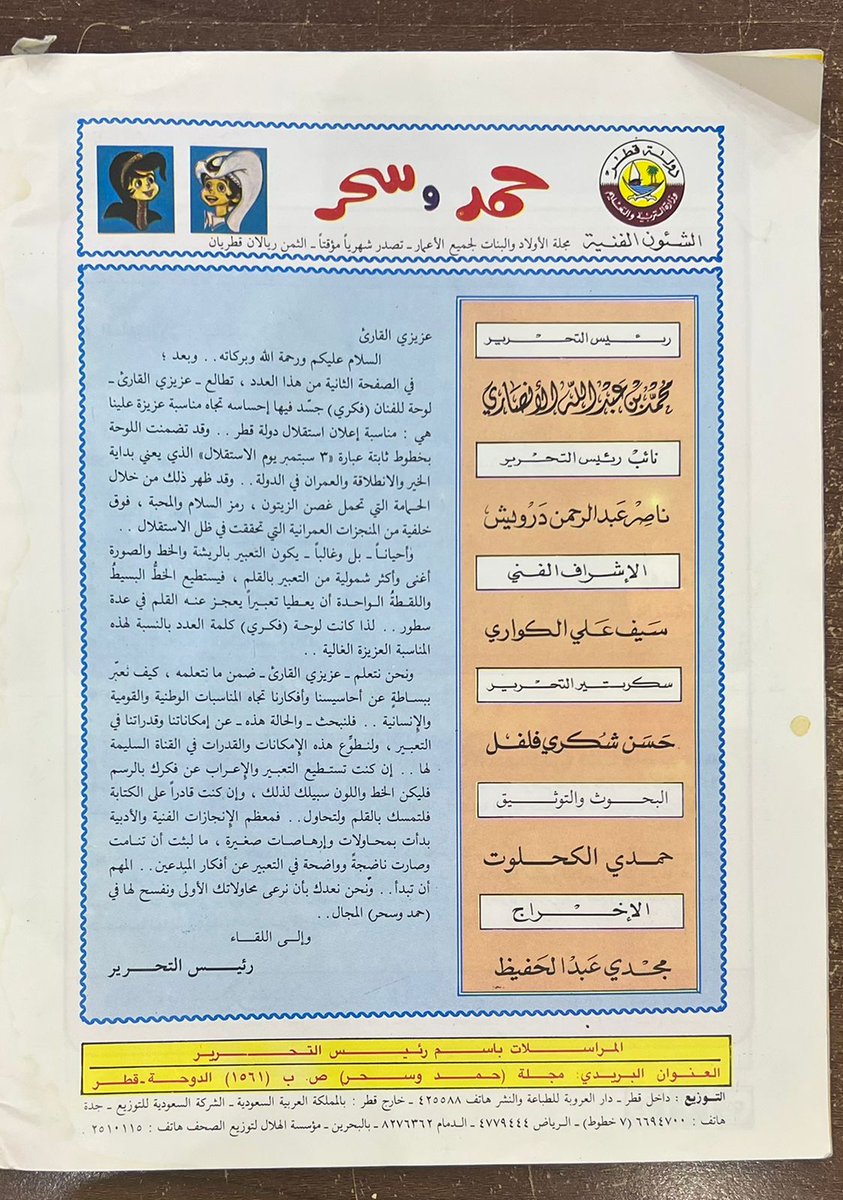 دولة قطر
وزارة التربية والتعليم
حمد وسحر
الشئون الفنية مجلة الأولاد والبنات لجميع الأعمار ـ تصدر شهرياً مؤقتاً ـ الثمن ريالان قطريان
رئيس التحرير
محمد بن عبد الله الأنصاري
نائب رئيس التحرير
ناصر عبد الرحمن درويش
الإشراف الفني
سيف علي الكواري
سكرتير التحرير
حسن شكري فلفل
البحوث والتوثيق
حمدي الكحلوت
الإخراج
مجدي عبد الحفيظ
عزيزي القارئ
السلام عليكم ورحمة الله وبركاته . . وبعد ؛
في الصفحة الثانية من هذا العدد ، تطالع ـ عزيزي القارئ ـ
لوحة للفنان (فكري) جسّد فيها إحساسه تجاه مناسبة عزيزة علينا
هي : مناسبة إعلان استقلال دولة قطر . . وقد تضمنت اللوحة
بخطوط ثابتة عبارة «٣ سبتمبر يوم الاستقلال» الذي يعني بداية
الخير والانطلاقة والعمران في الدولة . . وقد ظهر ذلك من خلال
الحمامة التي تحمل غصن الزيتون ، رمز السلام والمحبة ، فوق
خلفية من المنجزات العمرانية التي تحققت في ظل الاستقلال . .
وأحياناً ـ بل وغالباً ـ يكون التعبير بالريشة والخط والصورة
أغنى وأكثر شمولية من التعبير بالقلم ، فيستطيع الخطُّ البسيطُ
واللقطةُ الواحدة أن يعطيا تعبيراً يعجز عنه القلم في عدة
سطور . . لذا كانت لوحة (فكري) كلمة العدد بالنسبة لهذه
المناسبة العزيزة الغالية . .
ونحن نتعلم ـ عزيزي القارئ ـ ضمن ما نتعلمه ، كيف نعبّر
ببساطةٍ عن أحاسيسنا وأفكارنا تجاه المناسبات الوطنية والقومية
والإنسانية . . فلنبحث ـ والحالة هذه ـ عن إمكاناتنا وقدراتنا في
التعبير ، ولنطوِّع هذه الإمكانات والقدرات في القناة السليمة
لها . . إن كنت تستطيع التعبير والإعراب عن فكرك بالرسم
فليكن الخط واللون سبيلك لذلك ، وإن كنت قادراً على الكتابة
فلتمسك بالقلم ولتحاول . . فمعظم الإنجازات الفنية والأدبية
بدأت بمحاولات وإرهاصات صغيرة ، ما لبثت أن تنامت
وصارت ناضجةً وواضحة في التعبير عن أفكار المبدعين . . المهم
أن تبدأ . . ونحن نعدك بأن نرعى محاولاتك الأولى ونفسح لها في
(حمد وسحر) المجال . .
وإلى اللقاء
رئيس التحرير
المراسلات باسم رئيس التحرير
العنوان البريدي: مجلة (حمد وسحر) ص. ب (١٥٦١) الدوحة ـ قطر
التوزيع : داخل قطر ـ دار العروبة للطباعة والنشر هاتف ٤٢٥٥٨٨ ـ خارج قطر : بالمملكة العربية السعودية ـ الشركة السعودية للتوزيع ـ جدة
هاتف : ٦٦٩٤٧٠٠ (٧ خطوط) ـ الرياض ٤٧٧٩٤٤٤ ـ الدمام ٨٢٧٦٣٦٢ ـ بالبحرين ـ مؤسسة الهلال لتوزيع الصحف هاتف : ٢٥١٠١١٥